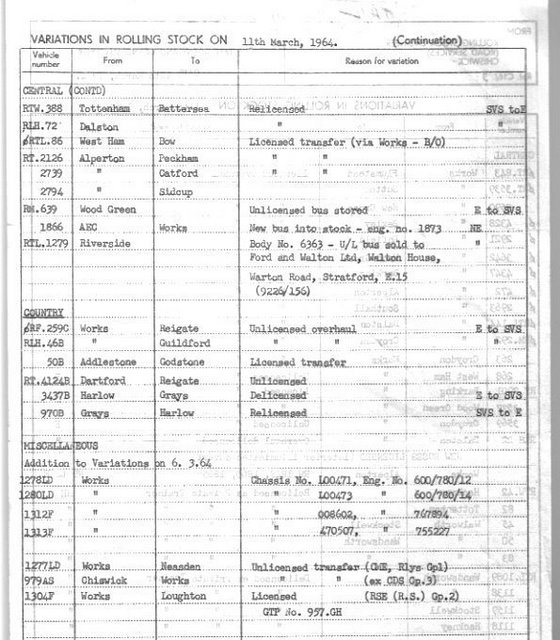 VARIATIONS IN ROLLING STOCK ON 11th March, 1964. (Continuation)
Vehicle number From To Reason for variation
CENTRAL (CONTD)
RTW.388 Tottenham Battersea Relicensed SVS to E
RLH.72 Dalston " "
ØRTL.86 West Ham Bow Licensed transfer (via Works - B/O)
RT.2126 Alperton Peckham " "
2739 " Catford " "
2794 " Sidcup
RM.639 Wood Green Unlicensed bus stored E to SVS
1866 AEC Works New bus into stock - eng. no. 1873 NE
RTL.1279 Riverside Body No. 6363 - U/L bus sold to "
Ford and Walton Ltd, Walton House,
Warton Road, Stratford, E.15
(9226/156)
COUNTRY
ØRF.259C Works Reigate Unlicensed overhaul E to SVS
RLH.46B " Guildford " " "
50B Addlestone Godstone Licensed transfer
RT.4124B Dartford Reigate Unlicensed
3437B Harlow Grays Delicensed E to SVS
970B Grays Harlow Relicensed SVS to E
MISCELLANEOUS
Addition to Variations on 6. 3.64
1278LD Works Chassis No. L00471, Eng. No. 600/780/12
1280LD " " L00473 " 600/780/14
1312F " " 008602, " 767894
1313F " " 470507, " 755227
1277LD Works Neasden Unlicensed transfer (CME, Rlys Gp1)
979AS Chiswick Works " " (ex CDS Gp.3)
1304F Works Loughton Licensed (RSE (R.S.) Gp.2)
GTP No. 957.GH